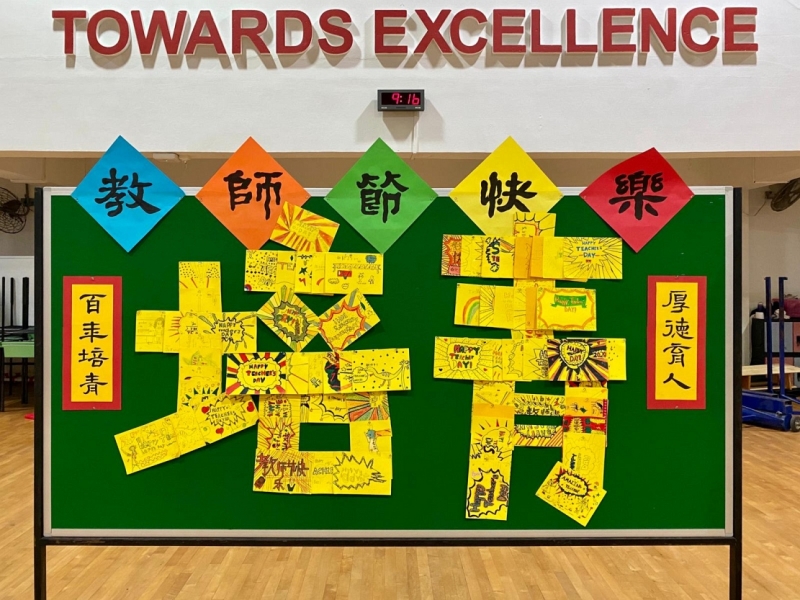 TOWARDS EXCELLENCE
9:16
教師節快樂
百年培青
培青
厚德育人
HAPPY TEACHER'S DAY!
HAPPY TEACHER'S DAY
HAPPY TEACHER'S DAY!
教师节快乐